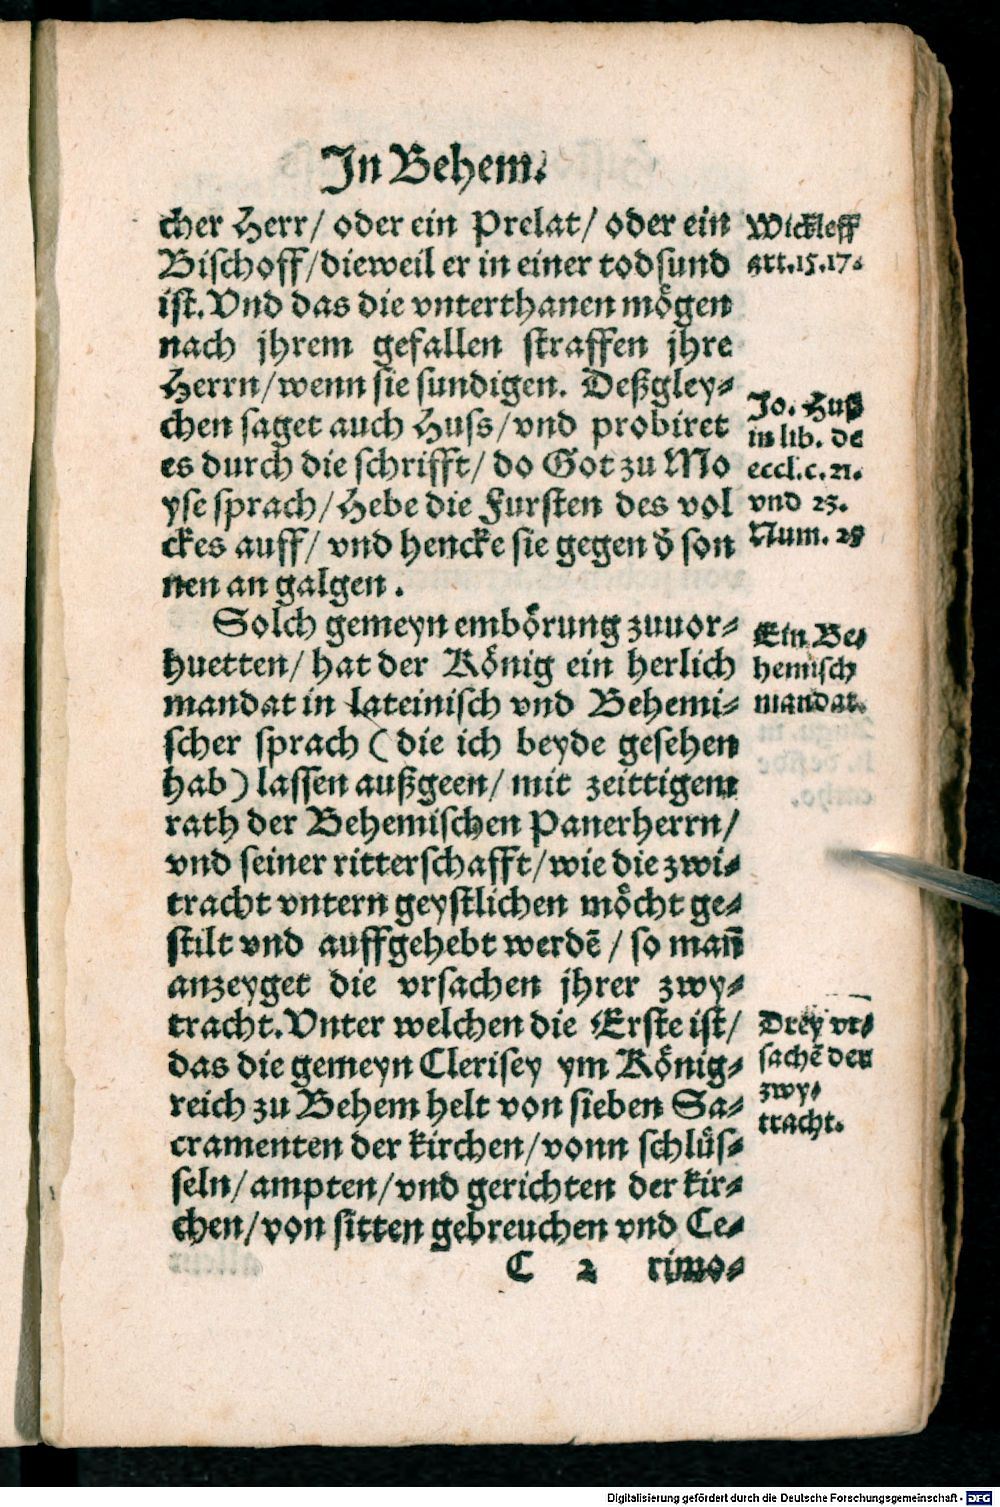 In Behem.
cher Herr/ oder ein Prelat/ oder ein
Bischoff/dieweil er in einer todsund
ist. Vnd das die vnterthanen mögen
nach jhrem gefallen straffen jhre
Herrn/wenn sie sundigen. Deßgley⸗
chen saget auch Huss/vnd probiret
es durch die schrifft/ do Got zu Mo
yse sprach/ Hebe die Fursten des vol
ckes auff/ vnd hencke sie gegen d̕ son
nen an galgen.
Solch gemeyn embörung zuuor⸗
huetten/ hat der König ein herlich
mandat in lateinisch vnd Behemi⸗
scher sprach (die ich beyde gesehen
hab) lassen außgeen/ mit zeittigem
rath der Behemischen Panerherrn/
vnd seiner ritterschafft/wie die zwi⸗
tracht vntern geystlichen möcht ge⸗
stilt vnd auffgehebt werdē/ so man̄
anzeyget die vrsachen jhrer zwy⸗
tracht. Vnter welchen die Erste ist/
das die gemeyn Clerisey ym König⸗
reich zu Behem helt von sieben Sa⸗
cramenten der kirchen/vonn schlüs⸗
seln/ampten/vnd gerichten der kir⸗
chen/von sitten gebreuchen vnd Ce⸗
C 2 rimo⸗
Wickleff
art.15.17.
Jo. Huß
in lib. de
eccl.c.21.
vnd 23.
Num. 25
Ein Be⸗
hemisch
mandat.
Drey vr⸗
sachē der
zwy⸗
tracht.
Digitalisierung gefördert durch die Deutsche Forschungsgemeinschaft - DFG